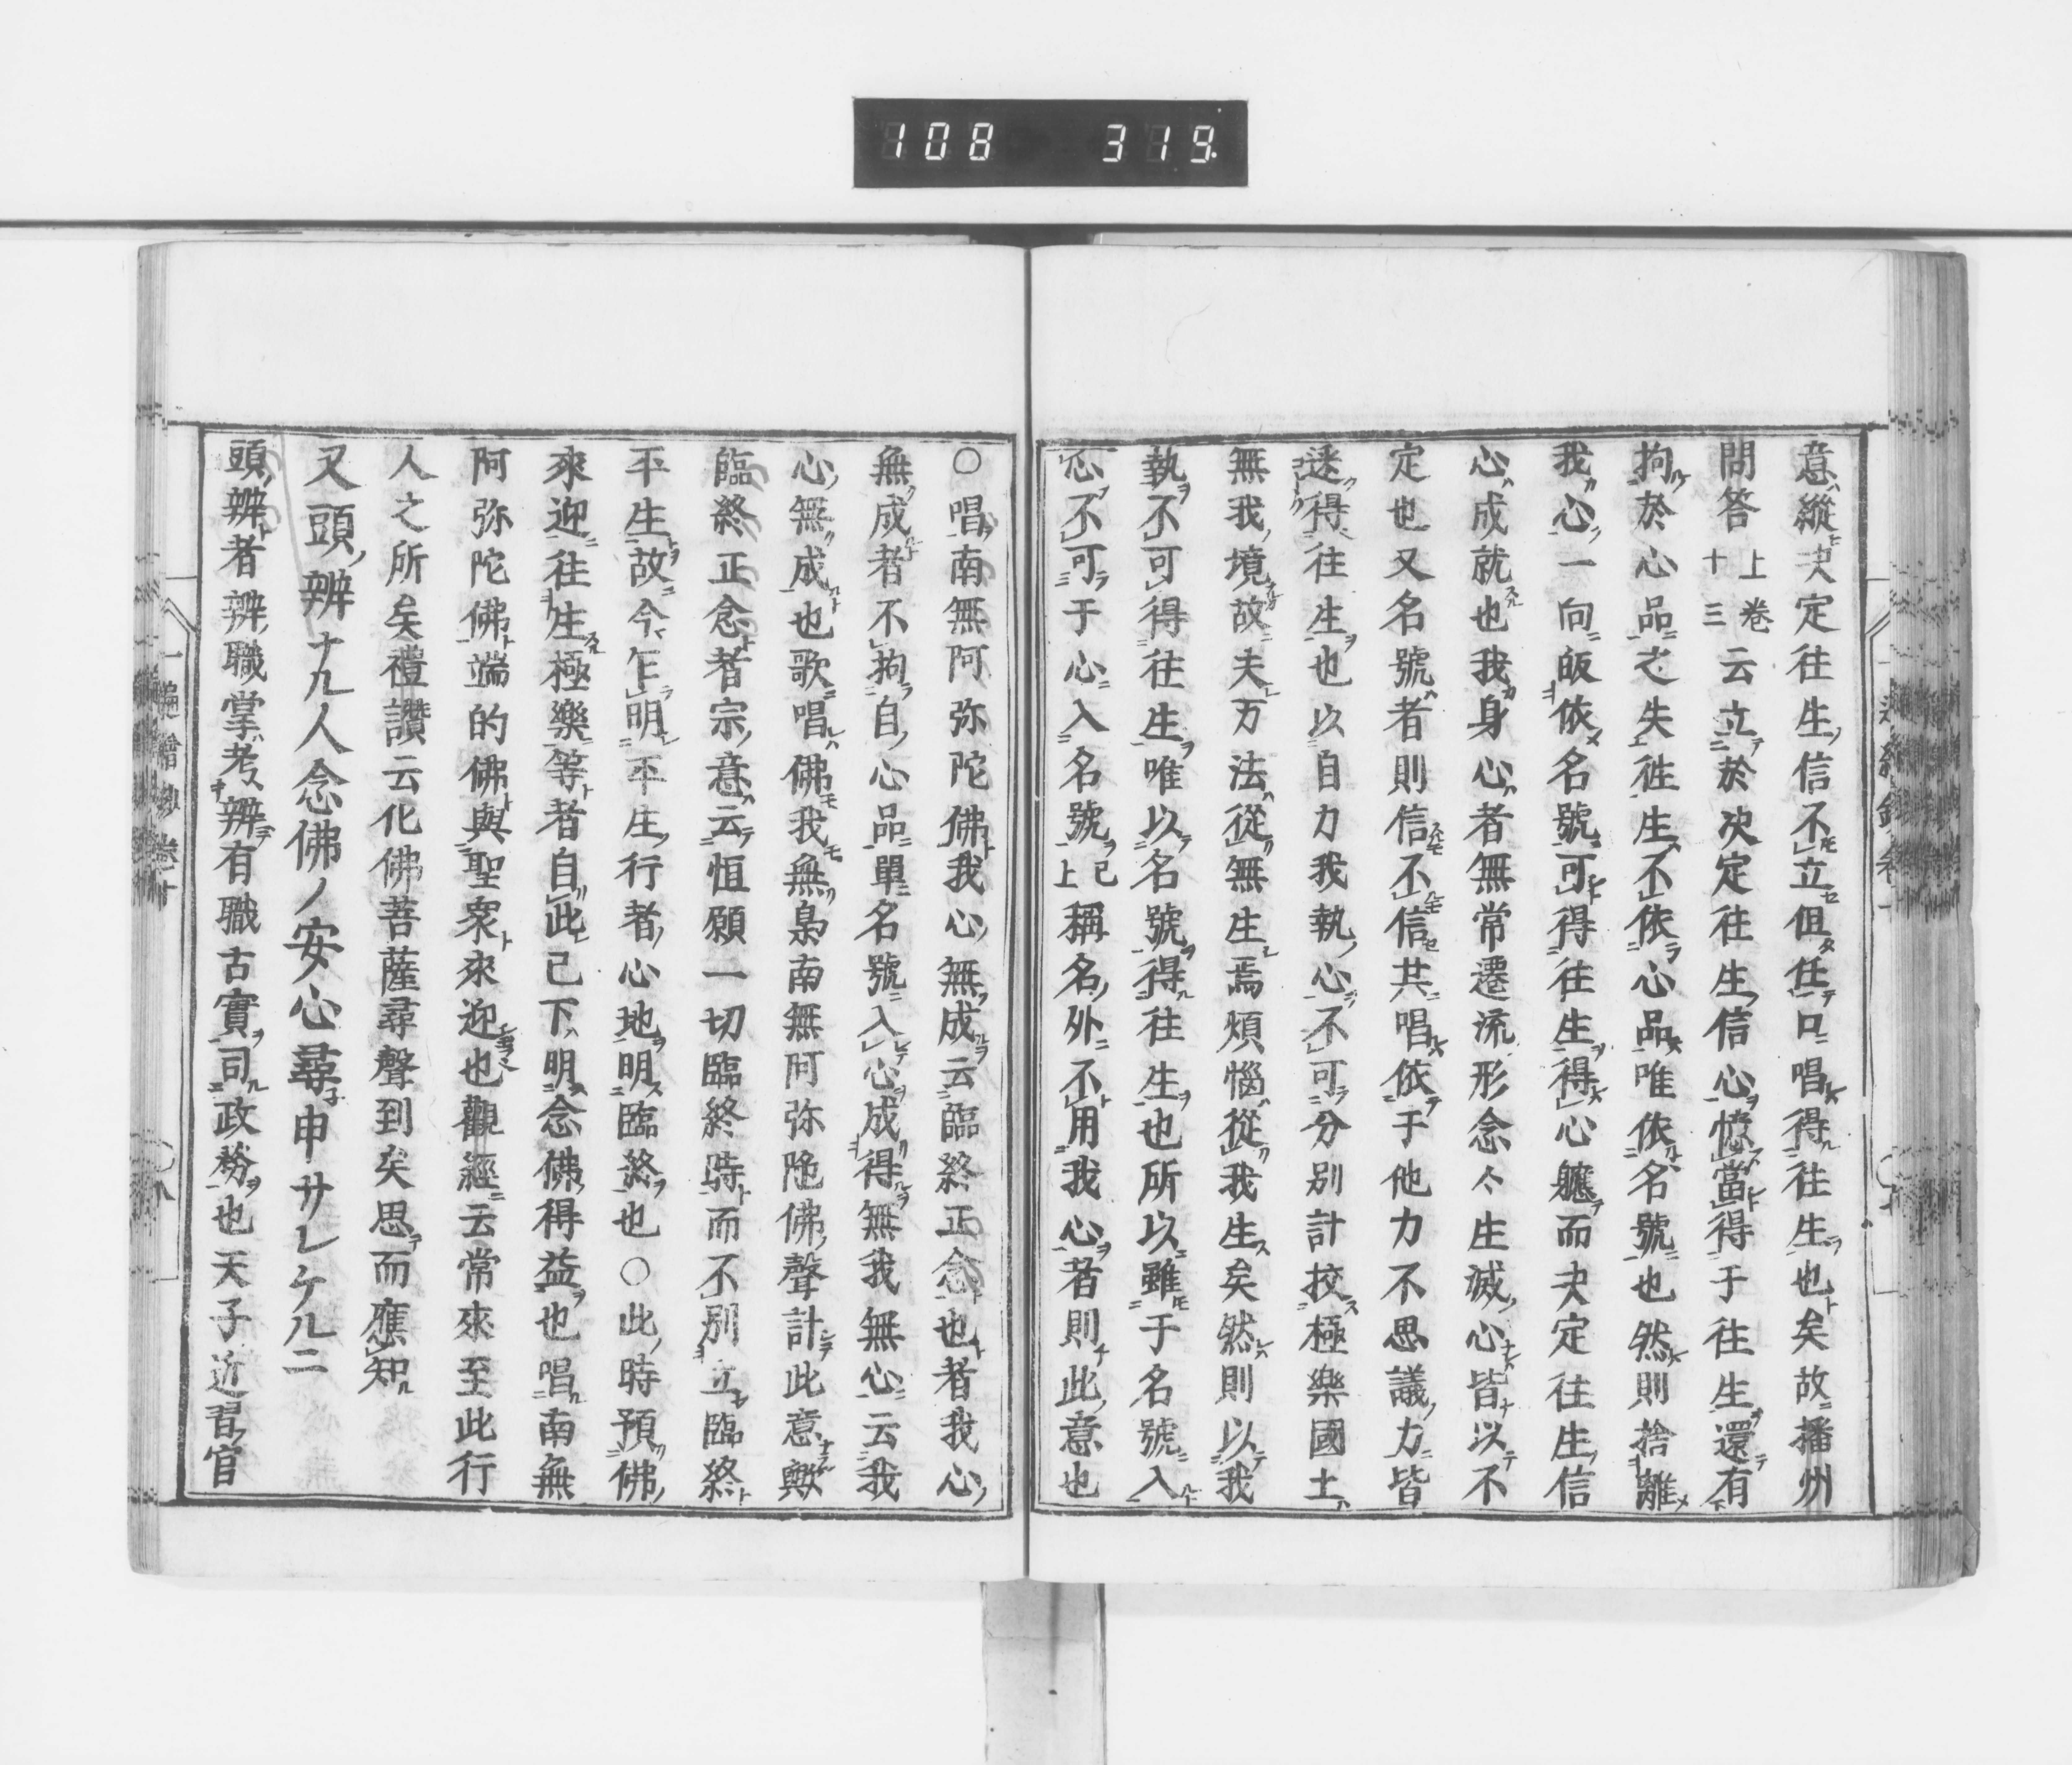 108 319
意縱决定往生信不立但任口唱得往生也矣故播州
問答上卷十三云立於决定往生信心憶當得于往生還有
拘於心品之失往生不依心品唯依名號也然則捨離
我心一向皈依名號可得往生得心軈而决定往生信
心成就也我身心者無常遷流形念今生滅心皆以不
定也又名號者則信不信共唱依于他力不思議力皆
遂得往生也以自力我執心不可分別計挍極樂國土
無我境故夫万法從無生焉煩惱從我生矣然則以我
執不可得往生唯以名號得往生也所以雖于名號入
心不可于心入名號已上稱名外不用我心者則此意也
○唱南無阿弥陀佛我心無成云臨終正念也者我心
無成者不拘自心品單名號入心成得無我無心云我
心無成也歌唱佛我無梟南無阿弥陁佛聲計此意歟
臨終正念者宗意云恒願一切臨終時而不別立臨終
平生故今乍明平生行者心地明臨終也○此時預佛
來迎往生極樂等者自此已下明念佛得益也唱南無
阿弥陀佛端的佛與聖衆來迎也觀經云常來至此行
人之所矣禮讚云化佛菩薩尋聲到矣思而應知
又頭辨ナル人念佛ノ安心尋申サレケル二
頭辨者辨職掌考辨有職古實司政務也天子近習官